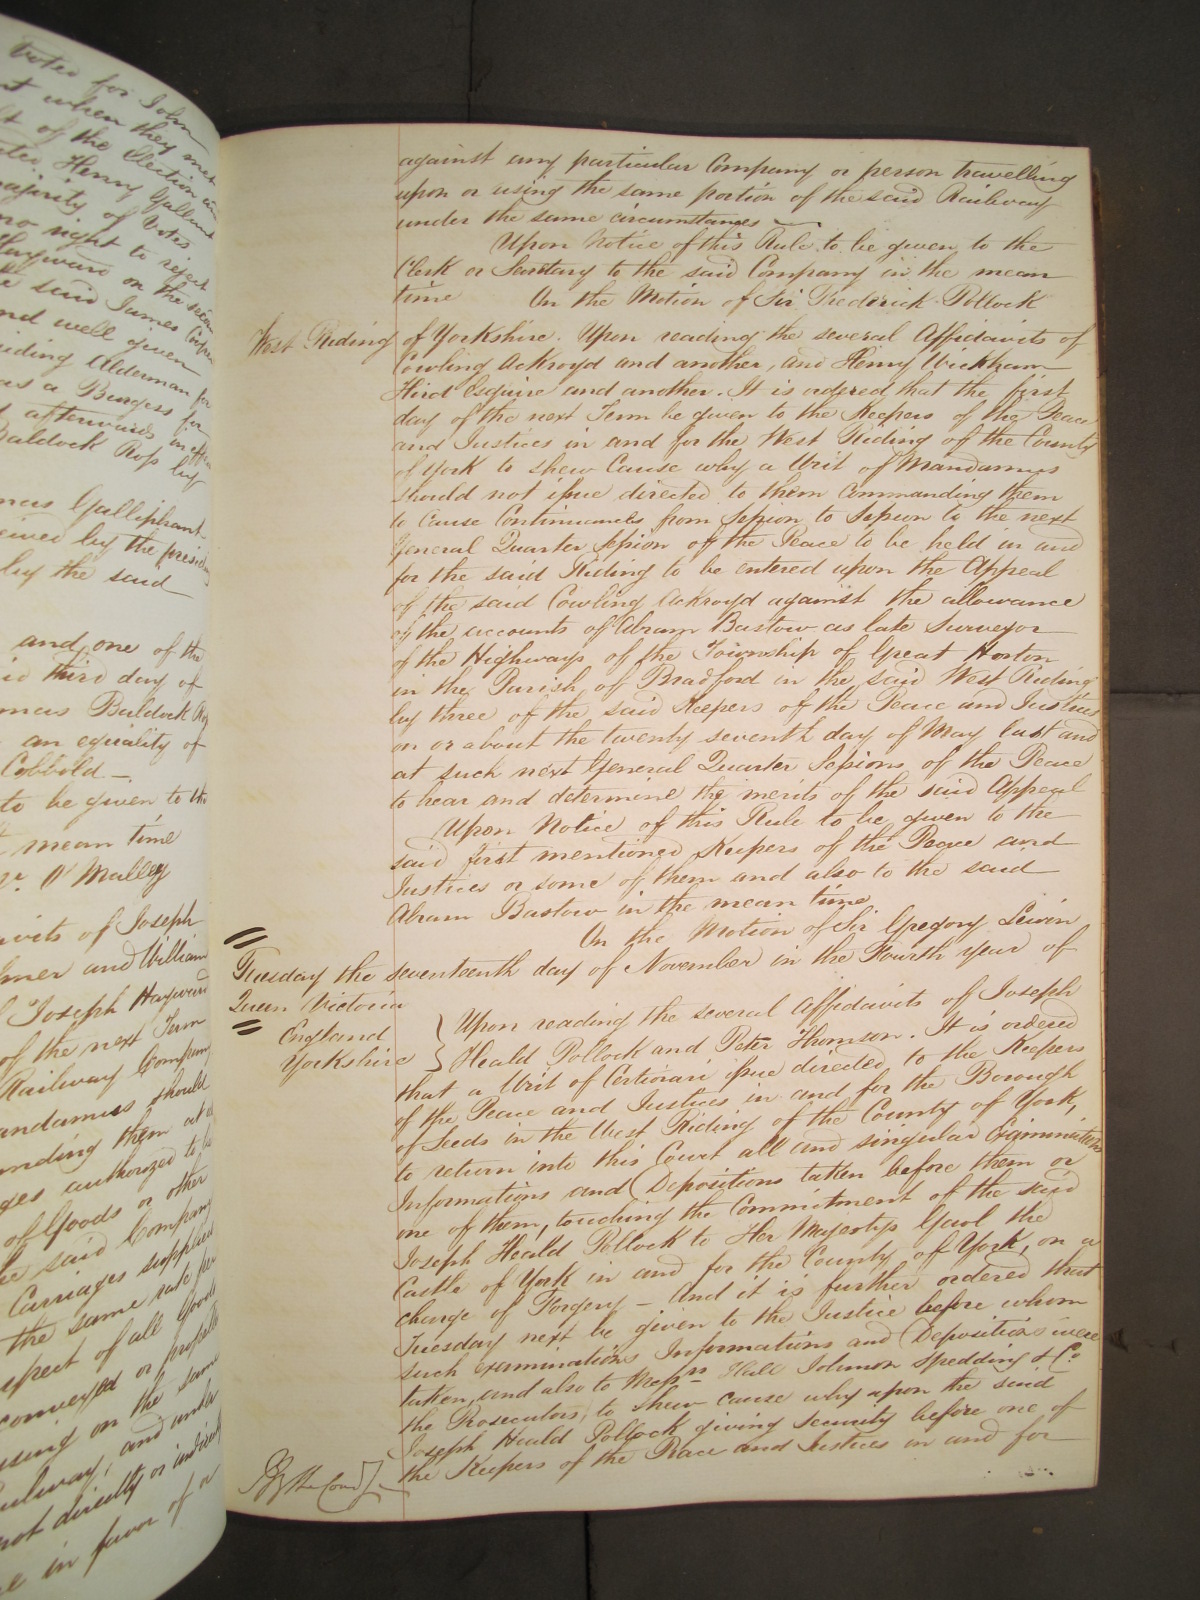 voted for John
when they met
of the Election
Henry Gallant
majority of Votes
no right to reject
Hayward on the
said James
and well given
Alderman for
as a Burgess for
afterwards
Baldock Ross by
Galliphant
by the
by the said
and one of the
third day of
Baldock
an equality of
Cobbold
to be given to the
mean time
O'Malley
of Joseph
and William
Joseph Hayward
of the next Term
Railway Company
should
them
authorized to
of Goods or other
said Company
Carriages supplied
the same rate per
of all Goods
conveyed or
using on the same
and under
not directly or
in favor of or
against any particular Company or person travelling
upon or using the same portion of the said Railway
under the same circumstances
Upon Notice of this Rule to be given to the
Clerk or Secretary to the said Company in the mean
time On the Motion of Sir Frederick Pollock
West Riding of Yorkshire. Upon reading the several Affidavits of
Cowling Ackroyd and another, and Henry Wickham
Hird Esquire and another. It is ordered that the first
day of the next Term be given to the Keepers of the Peace
and Justices in and for the West Riding of the County
of York to shew Cause why a Writ of Mandamus
should not issue directed to them Commanding them
to cause Continuances from Session to Session to the next
General Quarter Session of the Peace to be held in and
for the said Riding to be entered upon the Appeal
of the said Cowling Ackroyd against the allowance
of the accounts of Abram Bastow as late Surveyor
of the Highways of the Township of Great Horton
in the Parish of Bradford in the said West Riding
by three of the said Keepers of the Peace and Justices
on or about the twenty seventh day of May last and
at such next General Quarter Sessions of the Peace
to hear and determine the merits of the said Appeal
Upon Notice of this Rule to be given to the
said first mentioned Keepers of the Peace and
Justices or some of them and also to the said
Abram Bastow in the mean time
On the Motion of Sir Gregory Lewin
Tuesday the seventeenth day of November in the Fourth year of
Queen Victoria
England
Yorkshire
Upon reading the several Affidavits of Joseph
Heald Pollock and Peter Thomson. It is ordered
that a Writ of Certiorari issue directed to the Keepers
of the Peace and Justices in and for the Borough
of Leeds in the West Riding of the County of York,
to return into this Court all and singular Examinations
Informations and Depositions taken before them or
one of them, touching the Commitment of the said
Joseph Heald Pollock to Her Majestys Gaol the
Castle of York in and for the County of York, on a
charge of Forgery – And it is further ordered that
Tuesday next be given to the Justice before whom
such examinations Informations and Depositions were
taken, and also to Messrs Hall Johnson Spedding & Co.
the Prosecutors, to shew cause why upon the said
Joseph Heald Pollock giving security before one of
the Keepers of the Peace and Justices in and for
By the Court